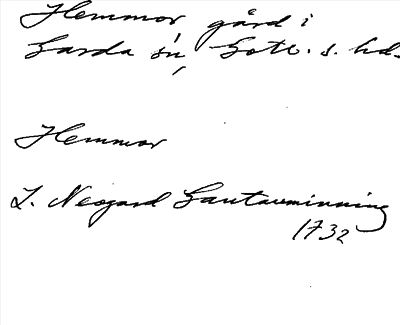 Hemmor gård i
Garda sn, Gotl. s. hd.
Hemmor
J. Neogard Gautauminning
1732